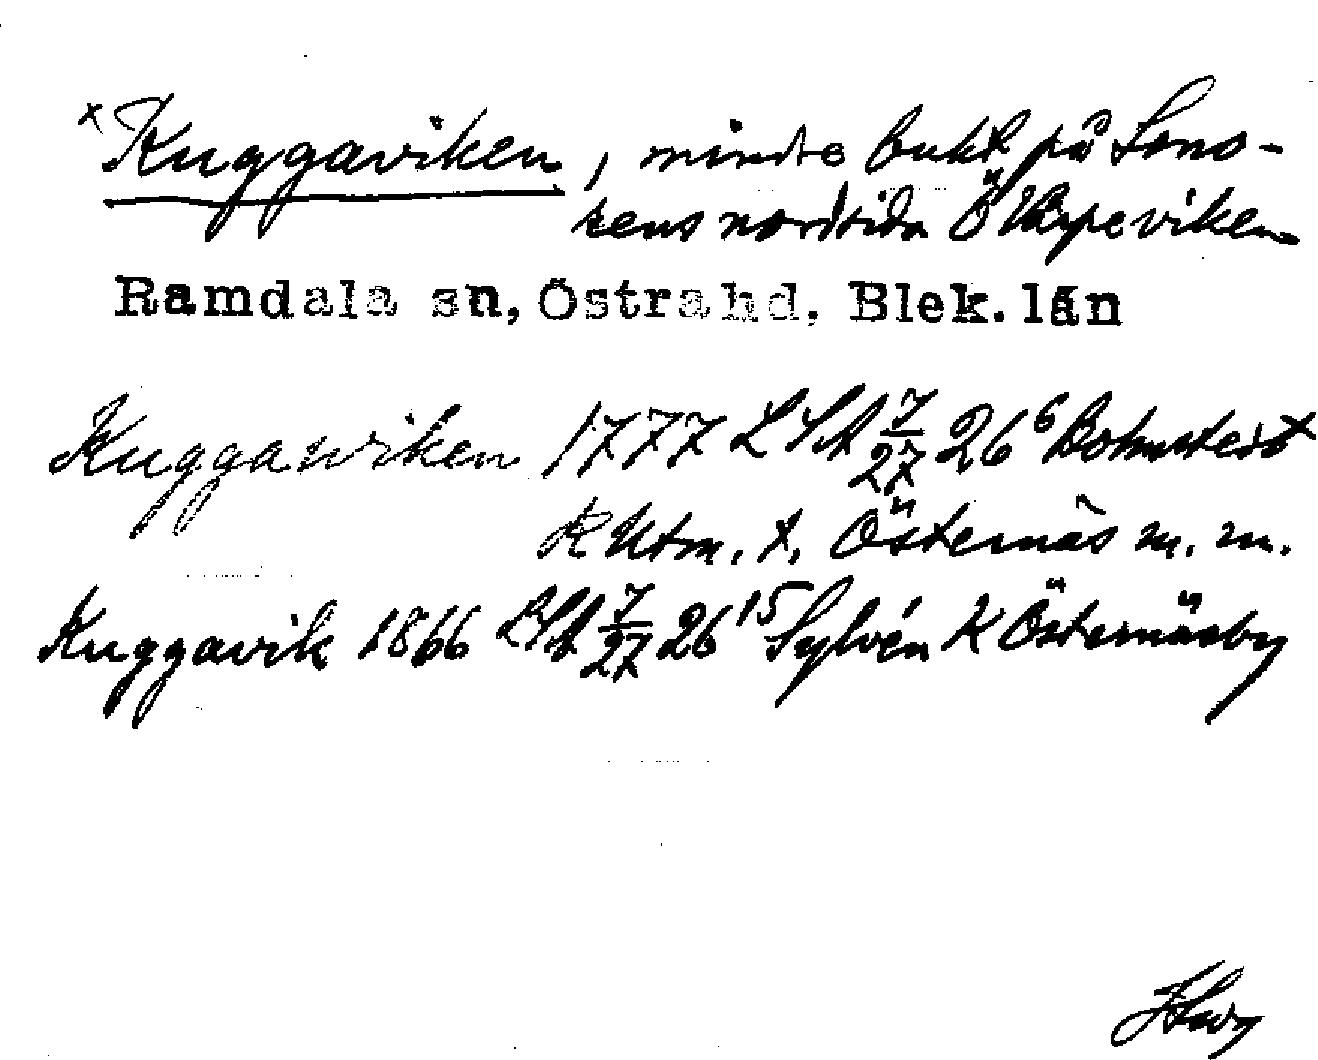 x Kuggaviken, mindre bukt på Seno-
rens nordsida Ö Vapeviken
Ramdala sn, Östra hd, Blek. län
Kuggawiken 1777 LSA 7/27 26⁶ Bohmstedt
K Utm. t. Östernäs m. m.
Kuggavik 1866 LSA 7/27 26¹⁵ Sylvén K Östernäsby